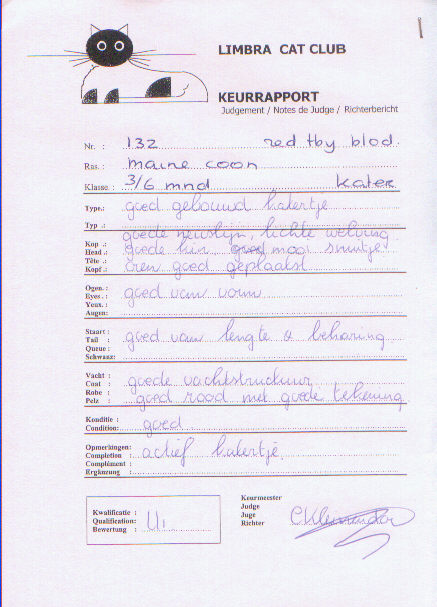 LIMBRA CAT CLUB
KEURRAPPORT
Judgement / Notes de Judge / Richterbericht
Nr. : 132 red tby blod.
Ras. : maine coon
Klasse : 3/6 mnd kater
Type.: goed gebouwd katertje
Typ .:
goede neuslijn, lichte welving
Kop .: goede kin goed mooi snuitje
Head .:
Tête .: oren goed geplaatst
Kopf .:
Ogen. :
Eyes. : goed van vorm
Yeux. :
Augen:
Staart :
Tail : goed van lengte & beharing
Queue :
Schwanz:
Vacht :
Coat : goede vachtstructuur
Robe : goed rood met goede tekening
Pelz :
Konditie : goed
Condition:
Opmerkingen:
Completion : actief katertje.
Complément :
Ergänzung :
Kwalificatie :
Qualification: U1.
Bewertung :
Keurmeester
Judge
Juge
Richter